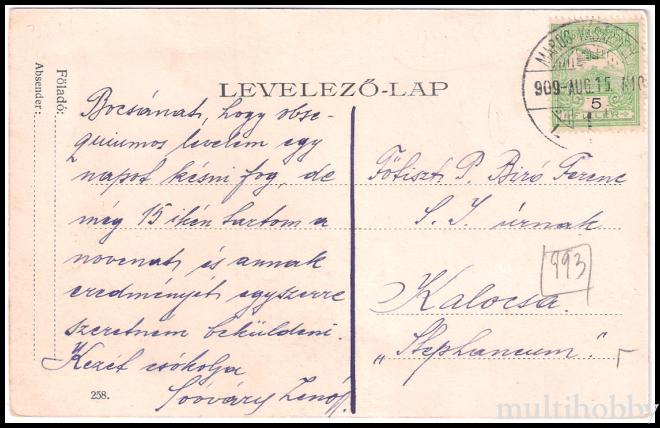 LEVELEZŐ-LAP
Föladó:
Absender:
Bocsánat, hogy obse-
quiumos levelem egy
napot késni fog, de
még 15 ikén tartom a
novenat, és annak
eredményét egyszerre
szeretnem beküldeni.
Kezét csókolja
Soóváry Zenó
258.
MAROS-VÁSÁRHELY
909-AUG.15.
5
FILLÉR
Főtiszt. P. Biró Ferenc
S. J. úrnak
993
Kalocsa.
„Stephaneum."
multihobby